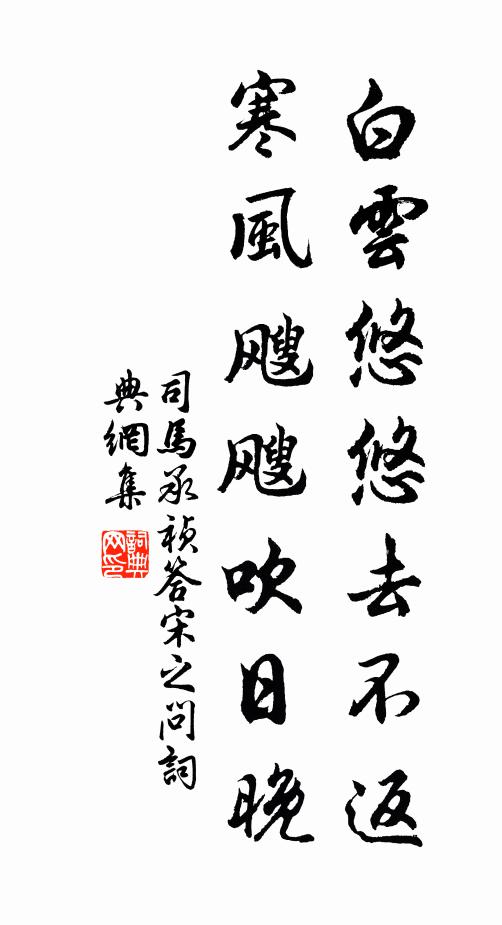 白雲悠悠去不返
寒風颼颼吹日晚
司馬承禎答宋之問詞
典網集
詞典
网印